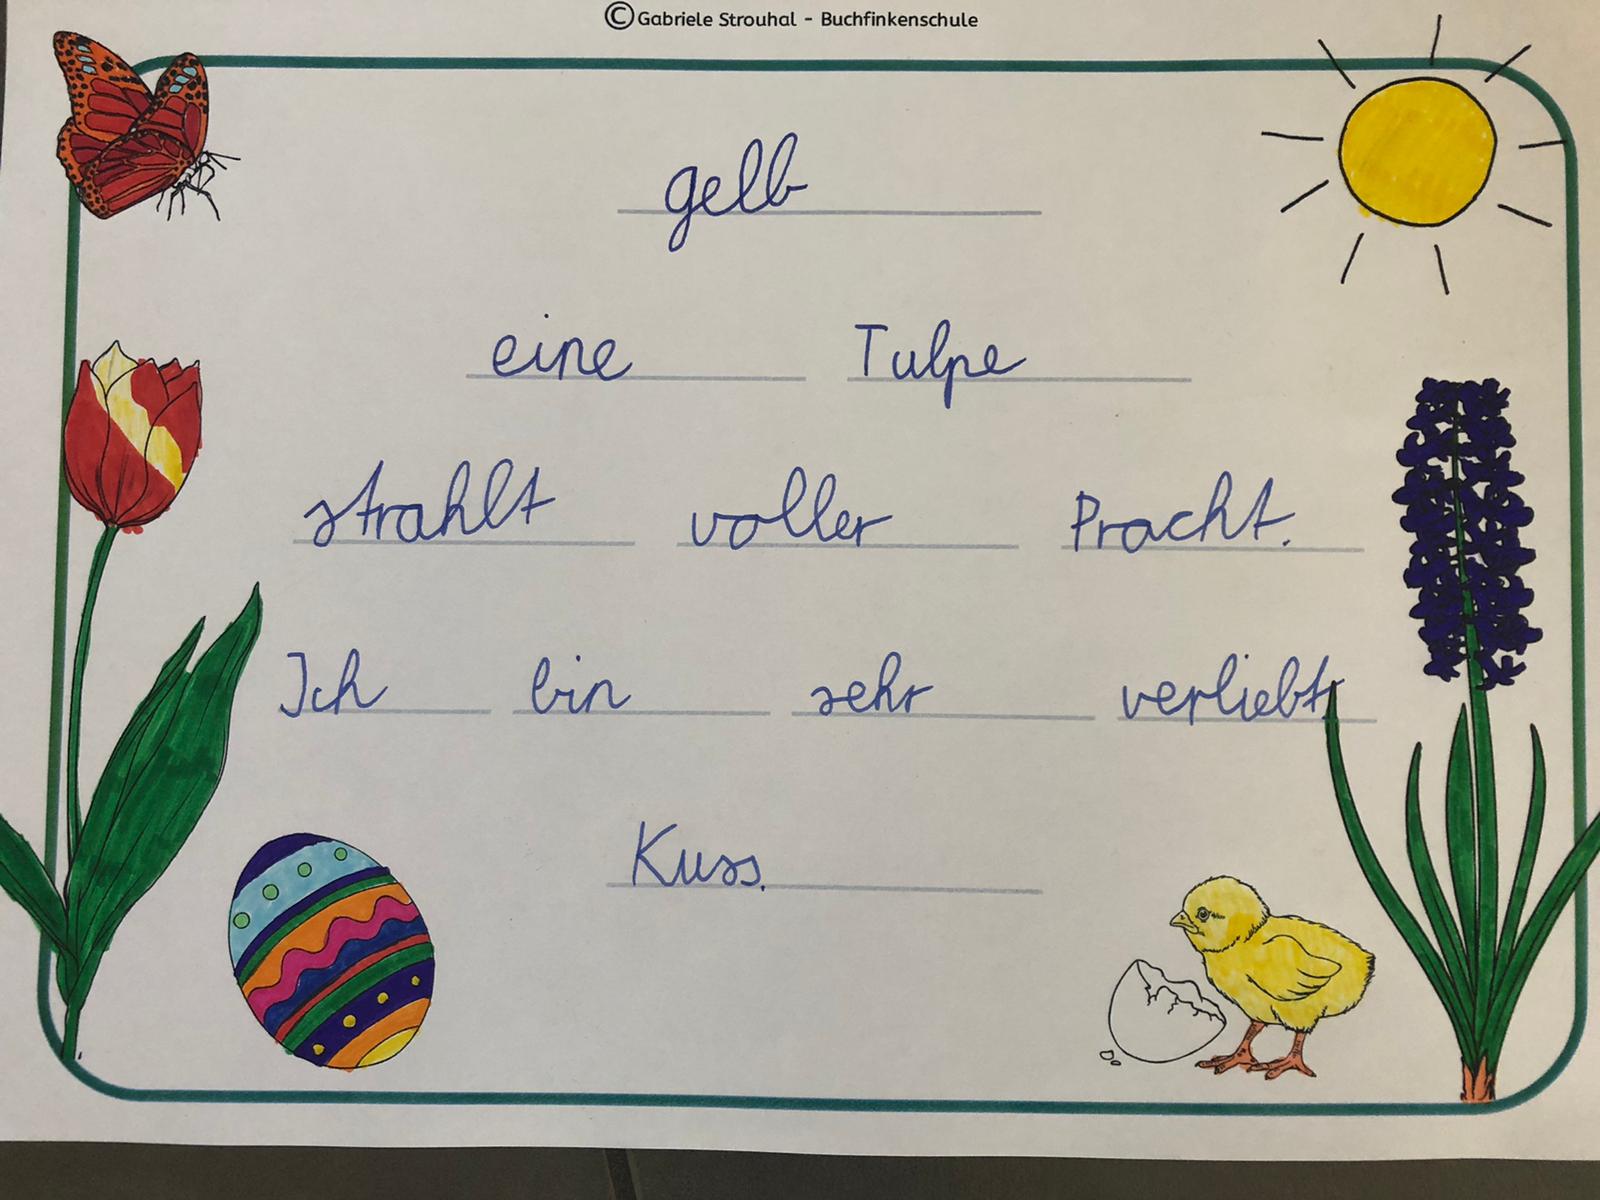 ©Gabriele Strouhal - Buchfinkenschule
gelb
eine Tulpe
strahlt voller Pracht.
Ich bin sehr verliebt.
Kuss.